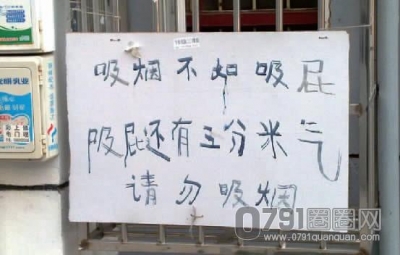 吸烟不如吸屁
吸屁还有五分米气
请勿吸烟
0791圈圈网
www.0791quanquan.com